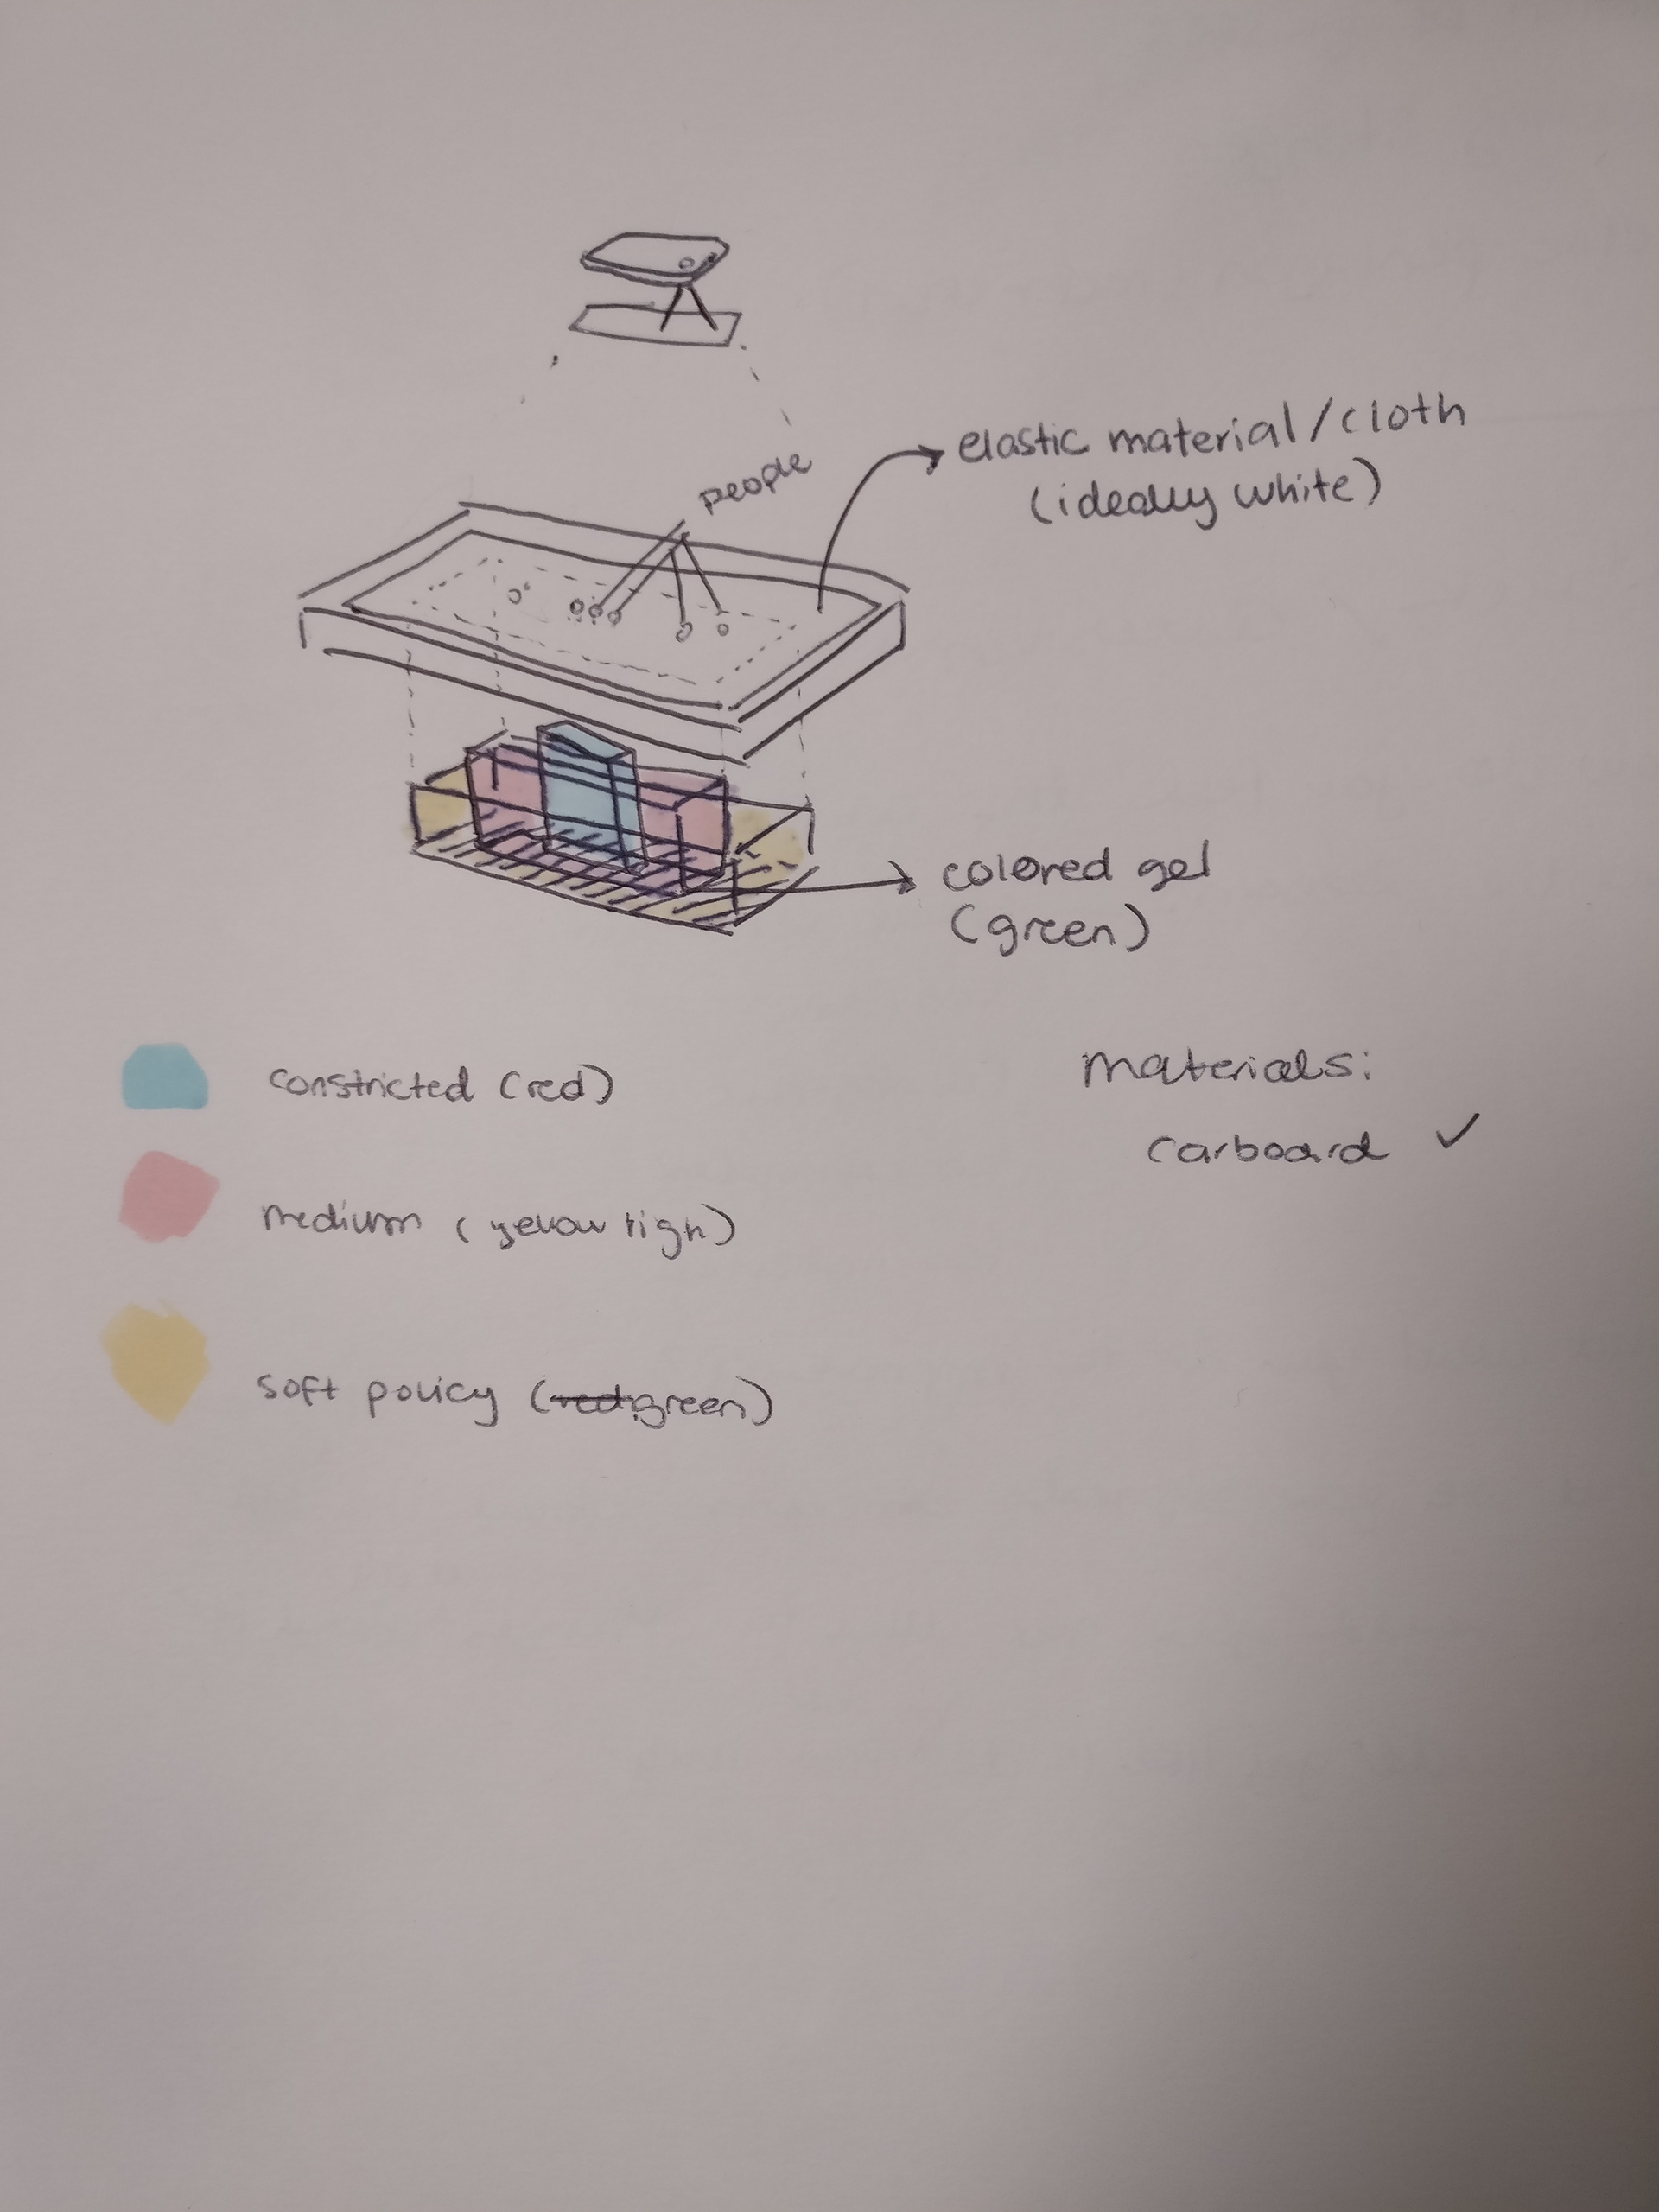 people
elastic material/cloth
(ideally white)
colored gel
(green)
constricted (red)
medium (yellow ligh)
soft policy (red green)
materials:
carboard ✓